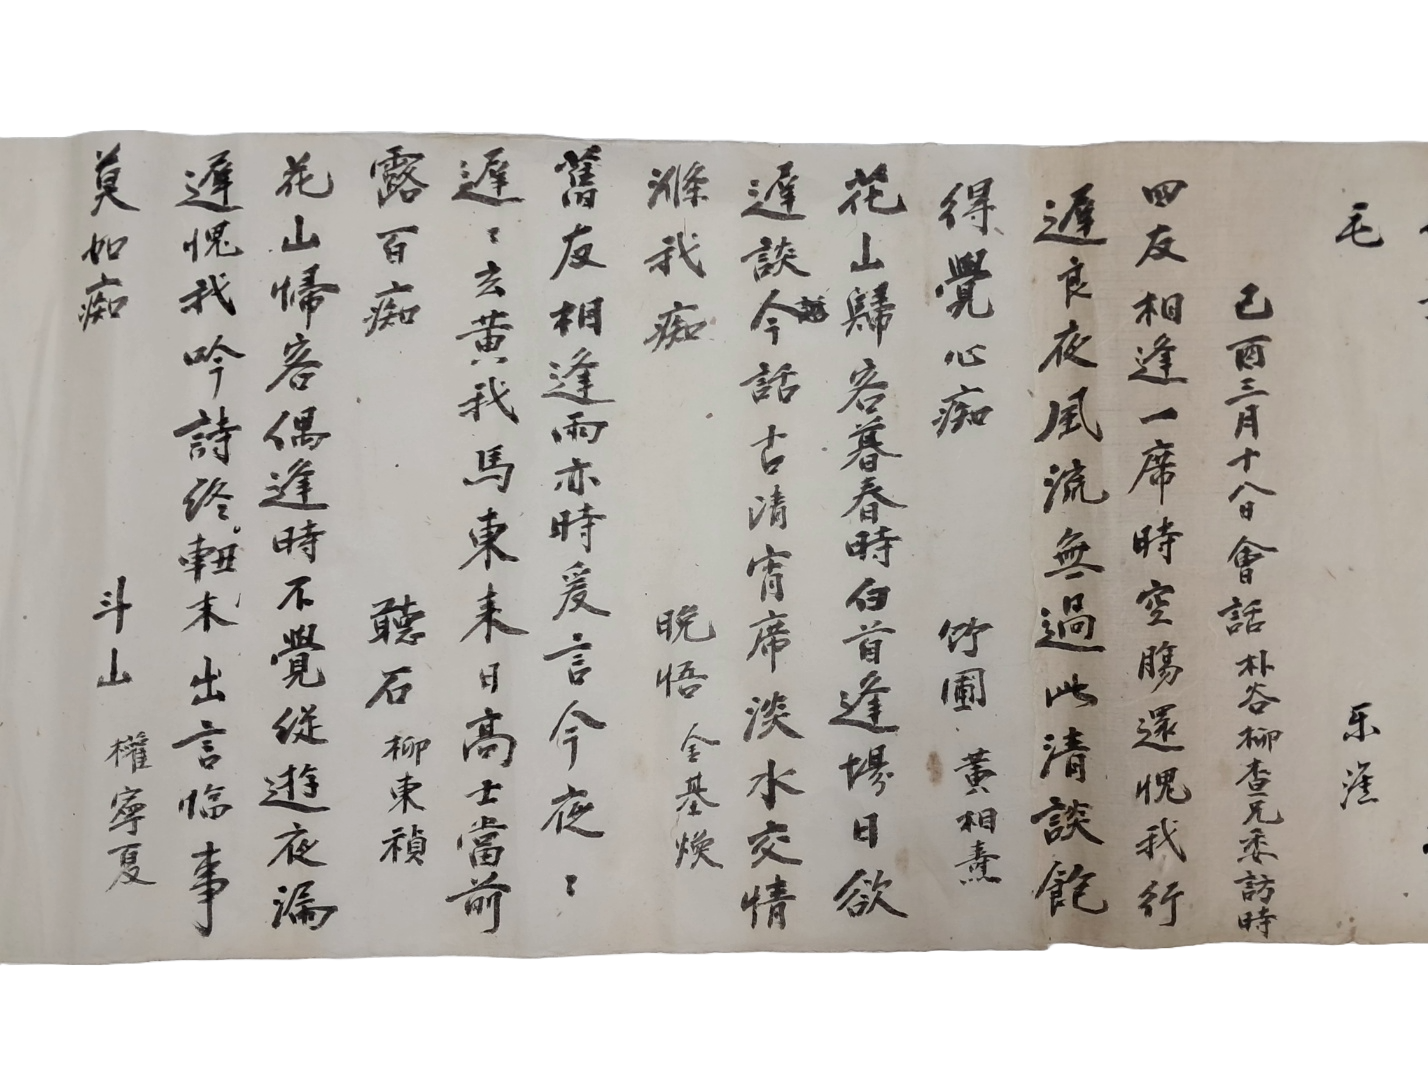 毛 乐窪
己酉三月十八日會話朴谷柳査兄委訪時
四友相逢一席時空腸還愧我行
遲良夜風流無過此清談飽
得覺心痴 竹圃 黃相熹
花山歸客暮春時白首逢場日欲
遲談今話古清宵席淡水交情
滌我痴 晩悟 金基煥
舊友相逢雨亦時爰言今夜〻
遲〻玄黃我馬東来日高士當前
露百痴 聽石 柳東禎
花山帰客偶逢時不覺従遊夜漏
遲愧我吟詩終 未出言臨事
莫如痴 斗山 權寧夏